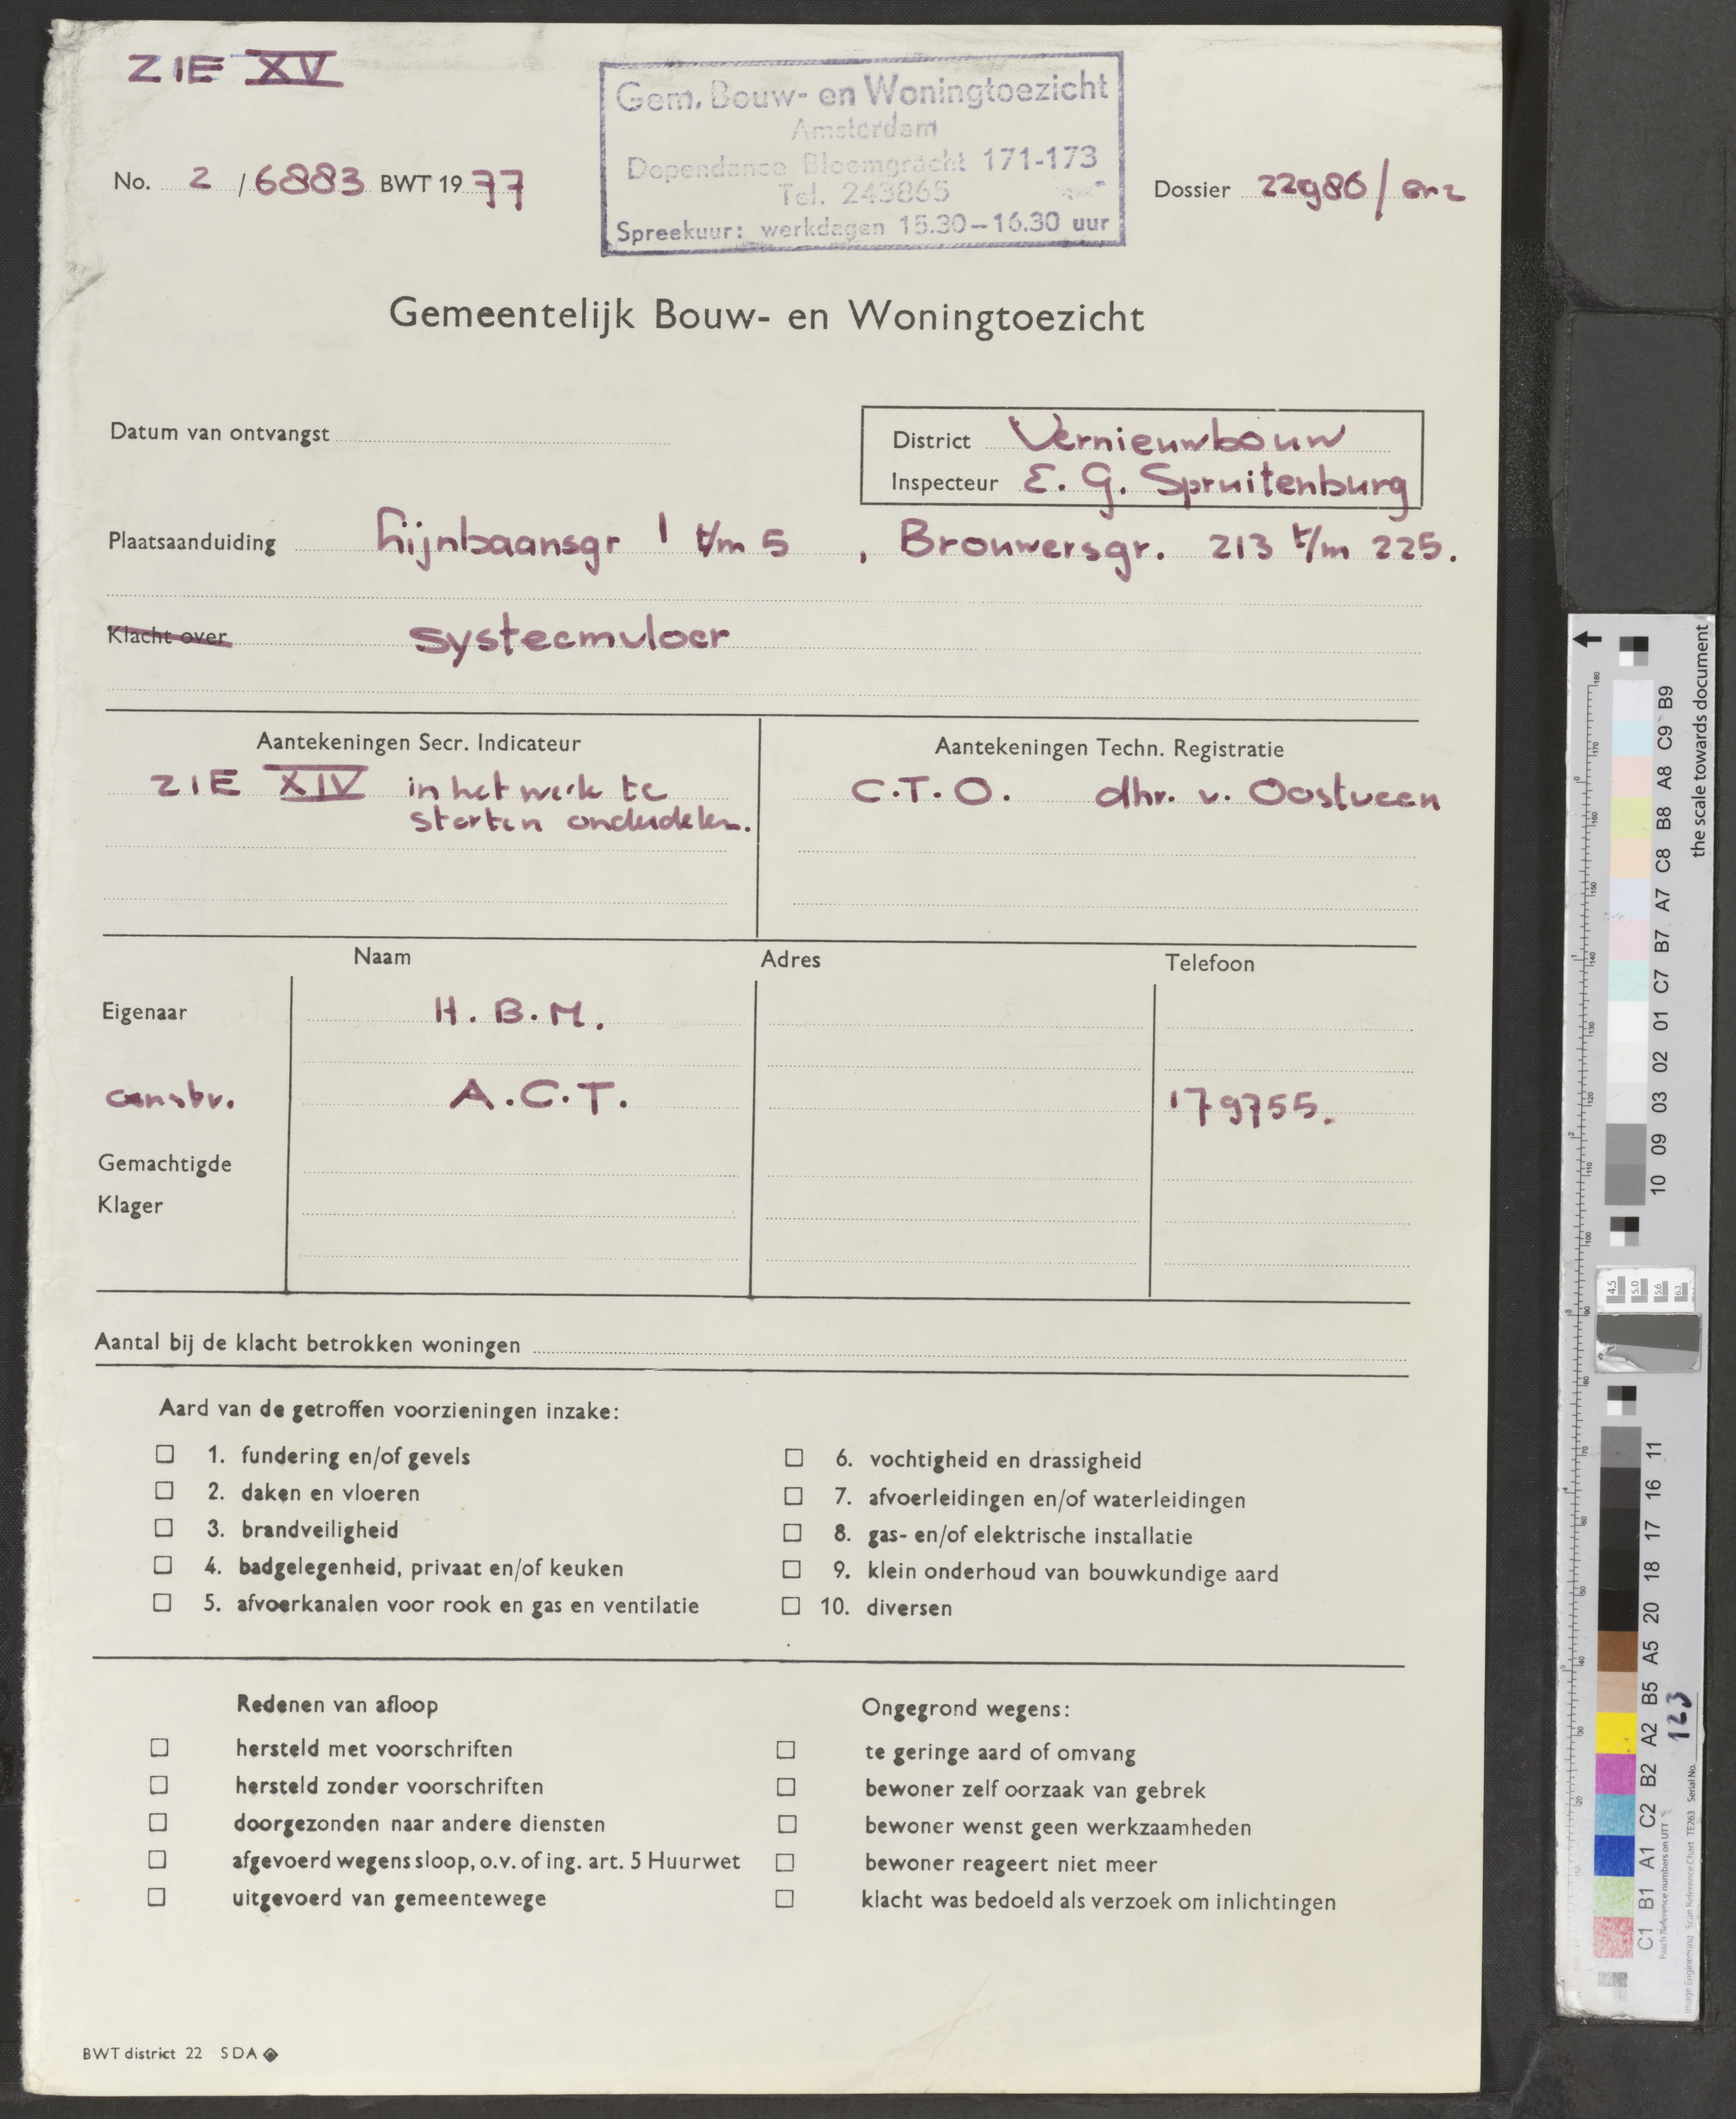 ZIE XV
Gem. Bouw- en Woningtoezicht
Amsterdam
Dependance Bloemgracht 171-173
Tel. 243865
Spreekuur: werkdagen 15.30-16.30 uur
No. 2 / 6883 BWT 1977
Dossier 22986 / enz
Gemeentelijk Bouw- en Woningtoezicht
Datum van ontvangst
District Vernieuwbouw
Inspecteur E. G. Spruitenburg
Plaatsaanduiding Lijnbaansgr 1 t/m 5 , Brouwersgr. 213 t/m 225.
Klacht over systeemvloer
Aantekeningen Secr. Indicateur
Aantekeningen Techn. Registratie
ZIE XIV in het werk te
storten onderdelen.
C.T.O. dhr. v. Oostveen
Naam Adres Telefoon
Eigenaar H.B.M.
constr. A.C.T. 179755.
Gemachtigde
Klager
Aantal bij de klacht betrokken woningen
Aard van de getroffen voorzieningen inzake:
1. fundering en/of gevels
2. daken en vloeren
3. brandveiligheid
4. badgelegenheid, privaat en/of keuken
5. afvoerkanalen voor rook en gas en ventilatie
6. vochtigheid en drassigheid
7. afvoerleidingen en/of waterleidingen
8. gas- en/of elektrische installatie
9. klein onderhoud van bouwkundige aard
10. diversen
Redenen van afloop
hersteld met voorschriften
hersteld zonder voorschriften
doorgezonden naar andere diensten
afgevoerd wegens sloop, o.v. of ing. art. 5 Huurwet
uitgevoerd van gemeentewege
Ongegrond wegens:
te geringe aard of omvang
bewoner zelf oorzaak van gebrek
bewoner wenst geen werkzaamheden
bewoner reageert niet meer
klacht was bedoeld als verzoek om inlichtingen
BWT district 22 SDA
the scale towards document
C1 B1 A1 C2 B2 A2 B5 A5 20 18 17 16 11
10 09 03 02 01 C7 B7 A7 C8 B8 A8 C9 B9
Image Engineering Scan Reference Chart TE263 Serial No. 123
Patch Reference numbers on UTT